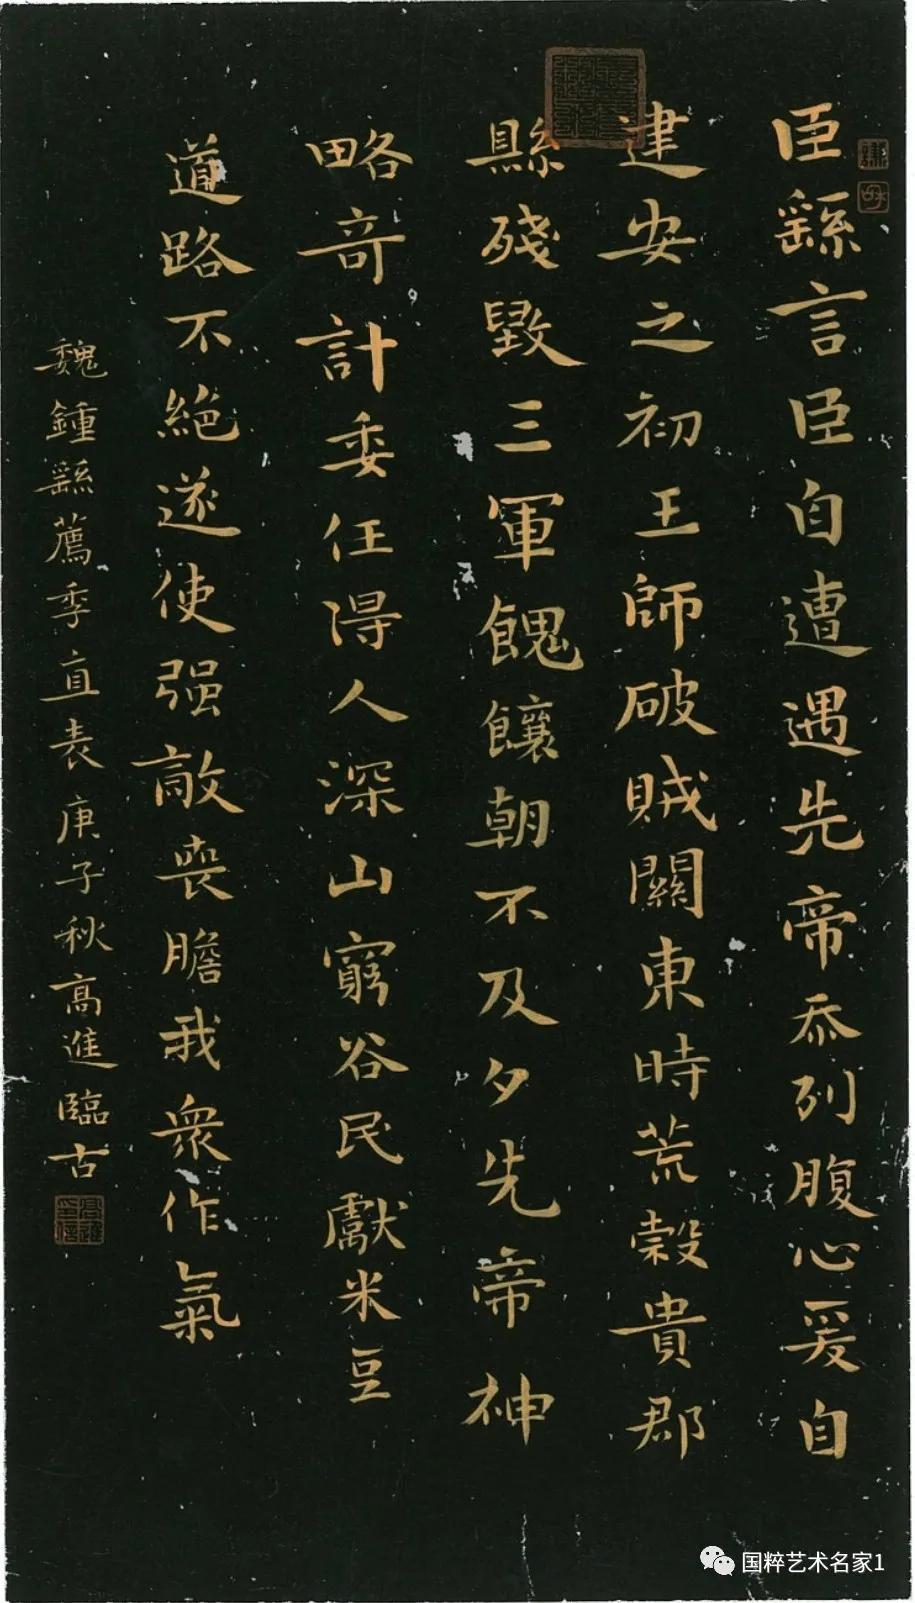 臣繇言臣自遭遇先帝忝列腹心爰自
建安之初王師破賊關東時荒穀貴郡
縣殘毀三軍餽饟朝不及夕先帝神
略奇計委任得人深山窮谷民獻米豆
道路不絕遂使强敵喪膽我衆作氣
魏鍾繇薦季直表庚子秋高進臨古
国粹艺术名家1